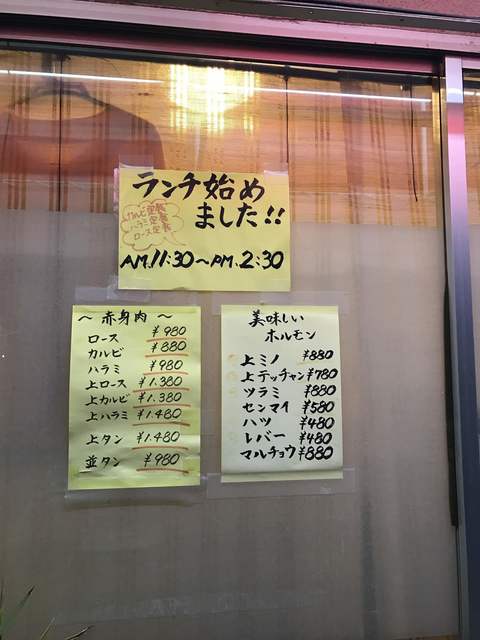 ランチ始め
ました!!
カルビ定食
ハラミ定食
ロース定食
AM.11:30～PM.2:30
～赤身肉～
ロース ¥980
カルビ ¥880
ハラミ ¥980
上ロース ¥1.380
上カルビ ¥1.380
上ハラミ ¥1.480
上タン ¥1.480
並タン ¥980
美味しい
ホルモン
上ミノ ¥880
上テッチャン ¥780
ツラミ ¥880
センマイ ¥580
ハツ ¥480
レバー ¥480
マルチョウ ¥880